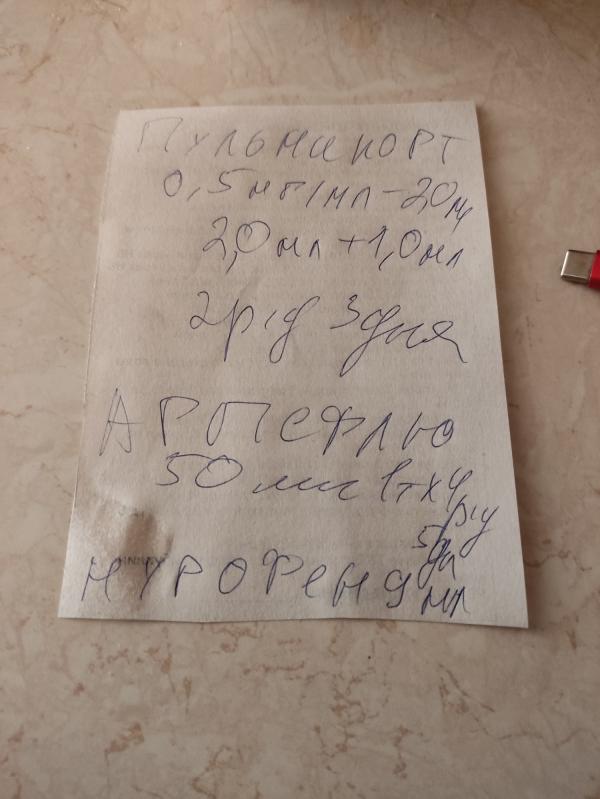 Пульмикорт
0,5 мг/мл – 2,0 мл
2,0 мл + 1,0 мл
2 р/д 3 дня
Арпефлю
50 мг 1т х 4
р/д
5 дн
Нурофен 9 мл